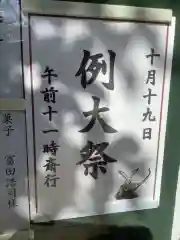 十月十九日
例大祭
午前十一時斎行
菓子
冨田浩司様